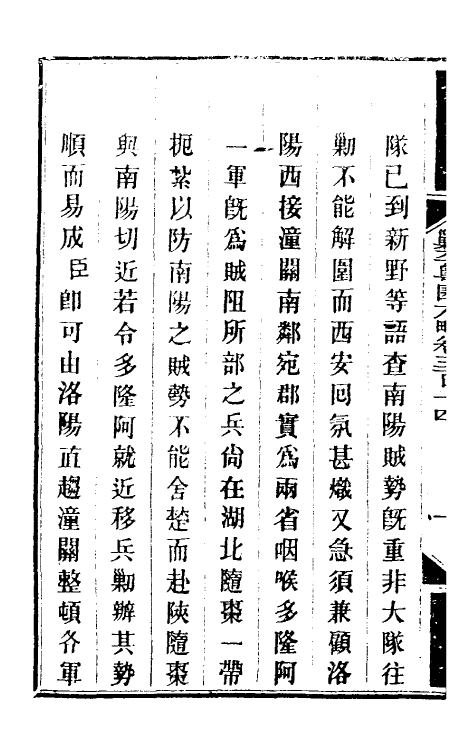 隊已到新野等語查南陽賊勢旣重非大隊往
勦不能解圍而西安回氛甚熾又急須兼顧洛
陽西接潼關南鄰宛郡實爲兩省咽喉多隆阿
一軍旣爲賊阻所部之兵尙在湖北隨棗一帶
扼紮以防南陽之賊勢不能舍楚而赴陝隨棗
與南陽切近若令多隆阿就近移兵勦辦其勢
順而易成臣卽可由洛陽直趨潼關整頓各軍